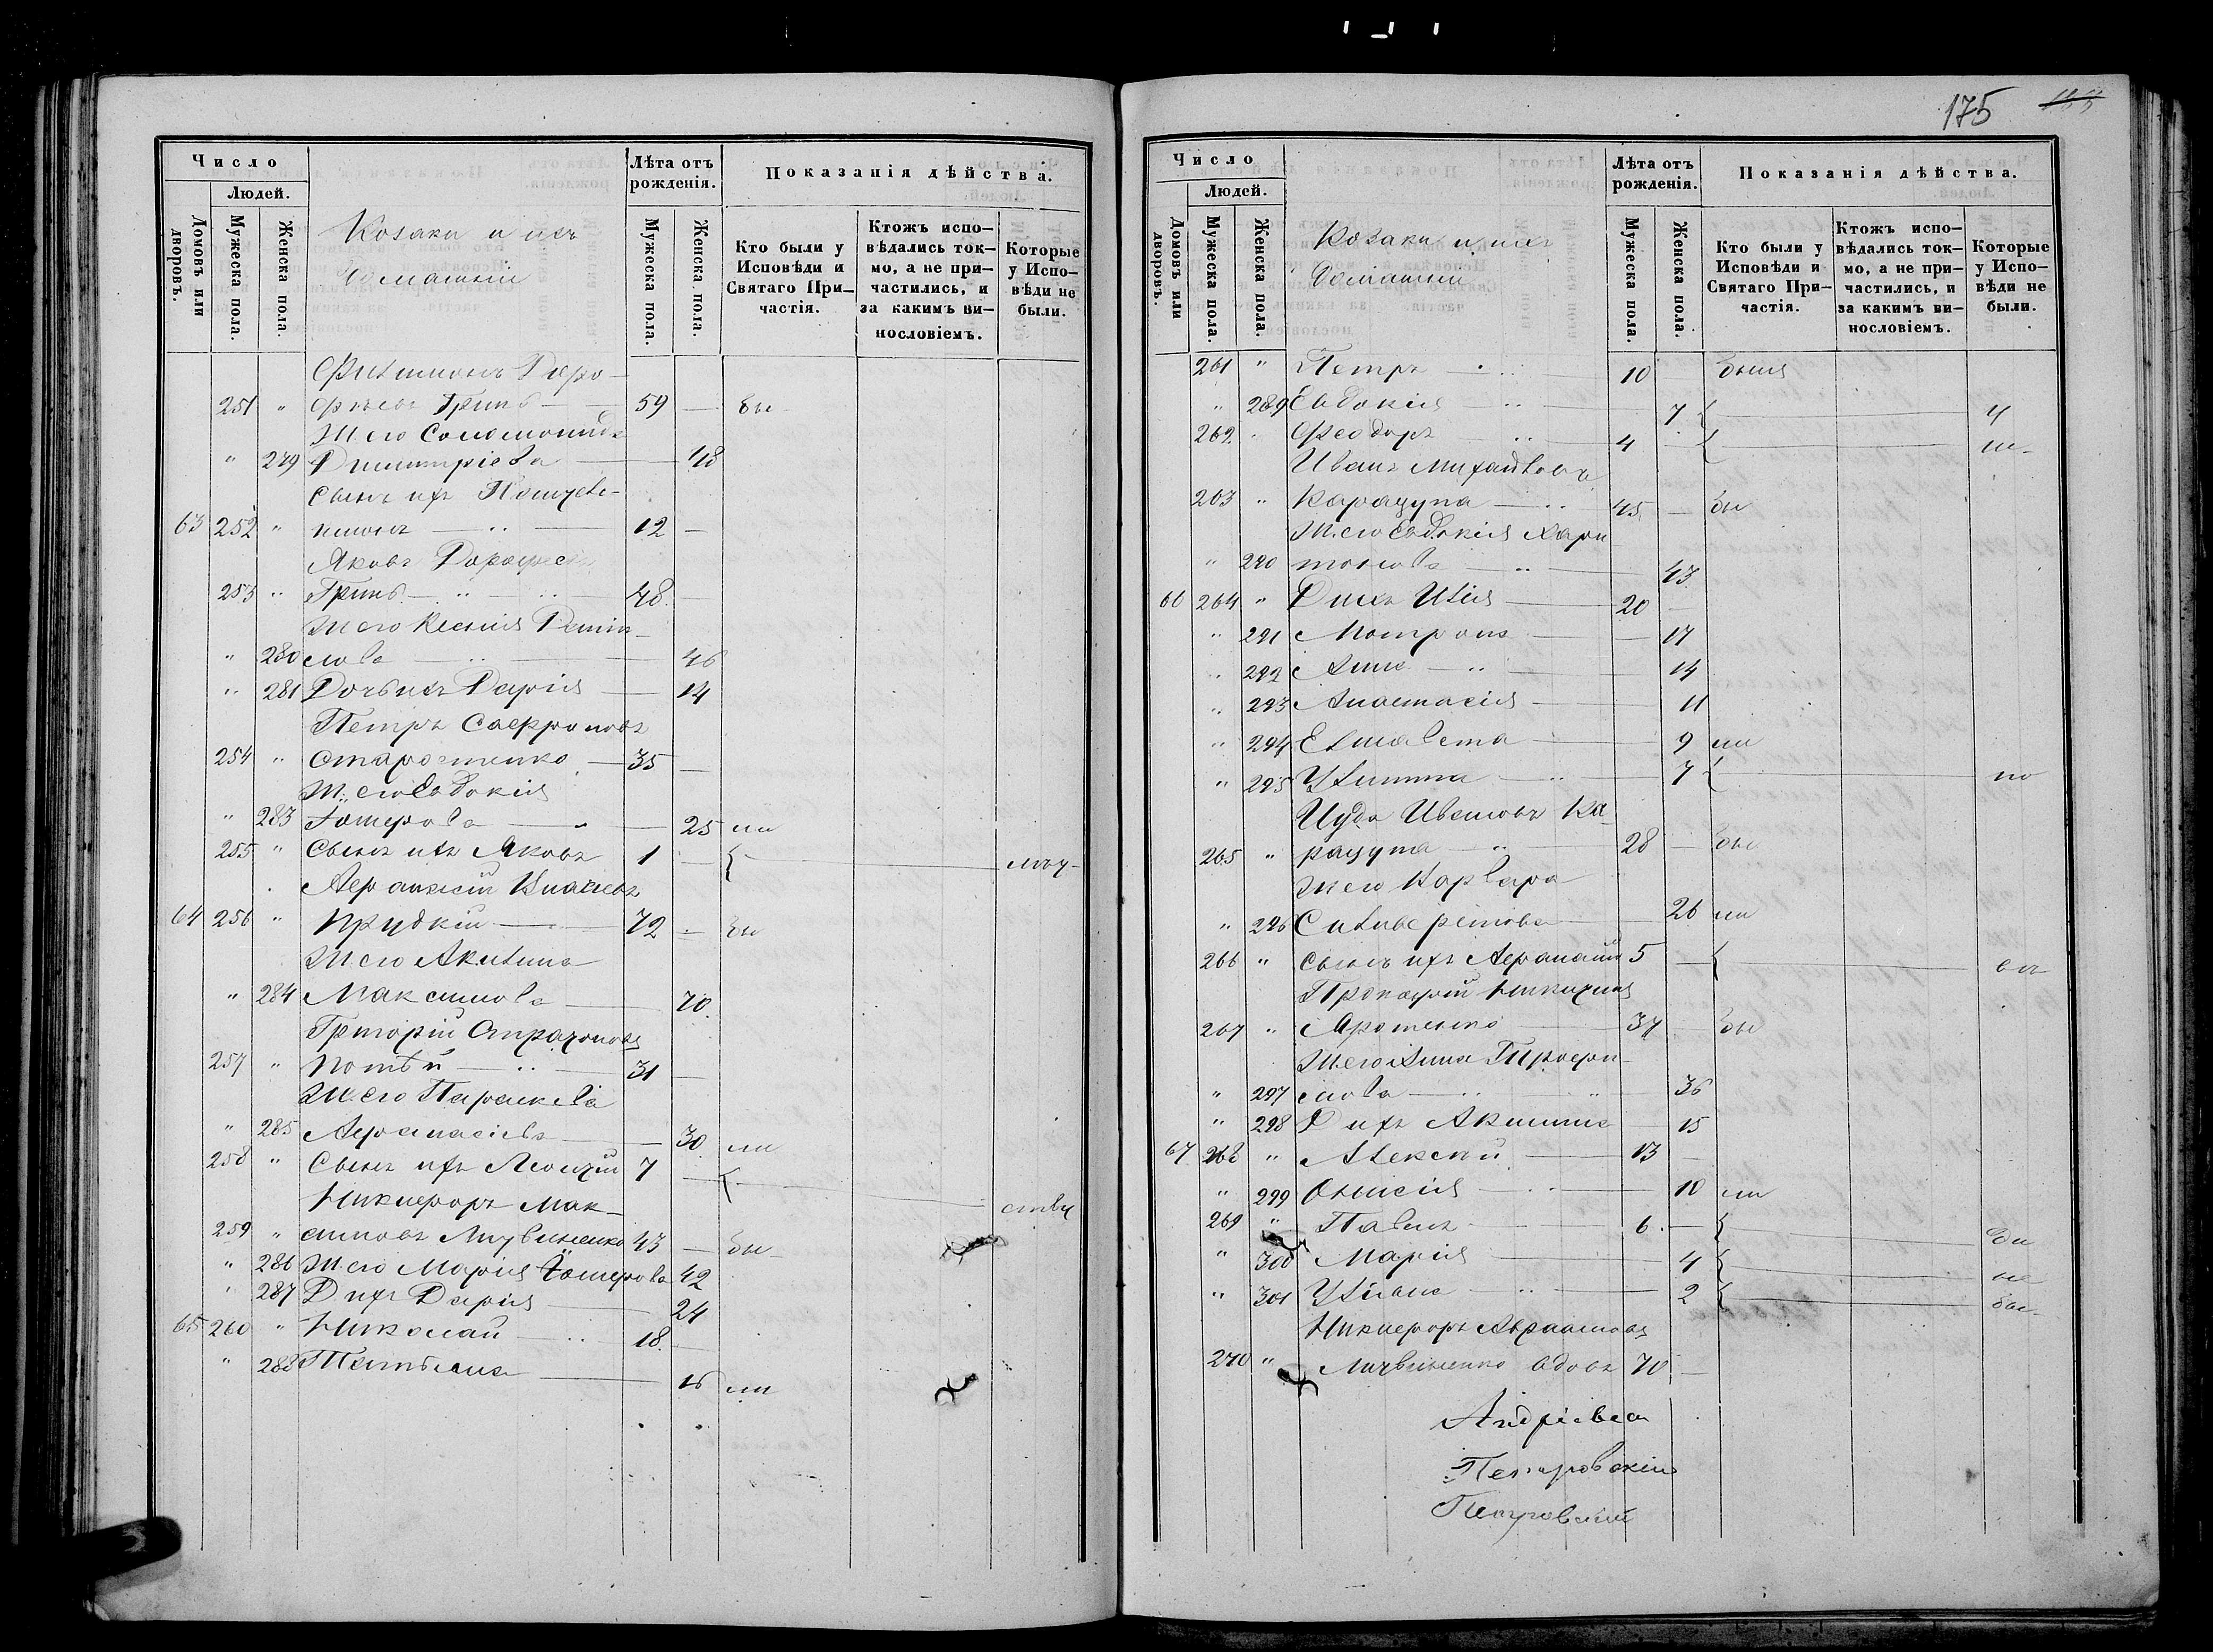 175 153
Число
Людей.
Домовъ или дворовъ.
Мужеска пола.
Женска пола.
Козаки и ихъ
домашніи
Лѣта отъ рожденія.
Мужеска пола.
Женска пола.
Показанія дѣйства.
Кто были у Исповѣди и Святаго Причастія.
Ктожъ исповѣдались токмо, а не причастились, и за какимъ винословіемъ.
Которые у Исповѣди не были.
Филимонъ Доро-
251 " фѣевъ Гринь 59 — бы
Ж. его Соломонида
" 279 Димитріева — 48
Сынъ ихъ Пантеле-
63 252 " имонъ 12 —
Яковъ Дорофеевъ
253 " Гринь 48 —
Ж его Ксенія Даніи-
" 280 лова — 46
" 281 Дочь ихъ Дарія — 14
Петръ Сафроновъ
254 " Старостенко 35 —
Ж. его Евдокія
" 283 — 25 ли
255 " Сынъ ихъ Яковъ 1 — {
Афанасій Игнатіевъ
64 256 " Прудкій 72 — бы
Ж. его Акилина
" 284 Максимова — 70
Григорій
257 " 31 —
Ж. его Параскева
" 285 Афанасіева — 30 ли
258 " Сынъ ихъ 7 — {
Никифоръ Мак-
259 " симовъ Литвиненко 43 — бы
" 286 Ж. его Марія 42
" 287 Д ихъ Дарія — 24
65 260 " Николай 18 —
" 288 Татьяна — 16 ли
Число
Людей.
Домовъ или дворовъ.
Мужеска пола.
Женска пола.
Козаки и ихъ
домашніи
Лѣта отъ рожденія.
Мужеска пола.
Женска пола.
Показанія дѣйства.
Кто были у Исповѣди и Святаго Причастія.
Ктожъ исповѣдались токмо, а не причастились, и за какимъ винословіемъ.
Которые у Исповѣди не были.
261 " Петръ 10 были
" 289 Евдокія 7 {
262 " Феодоръ 4 — {
Иванъ Михайловъ
263 " Карацупа 45 — бы
Ж. его Евдокія Хари
" 290 тонова 43
66 264 " Д ихъ Илія 20 —
" 291 Матрона — 17
" 292 Анна 14
" 293 Анастасія 11
" 294 Елисавета 9 ли
" 295 Улита 7 { по
Іуда Ивановъ Ка-
265 " рацупа 28 — бы
Ж его Варвара
" 296 Силиверстова 26 ли
266 " Сынъ ихъ Афанасій 5 — {
Прокофій
267 " 37 — бы
Ж его Анна Трофи-
" 297 мова 36
" 298 Д ихъ Акилина — 15
67 268 " Алексѣй 13 —
" 299 Онисія 10 ли
269 " Павелъ 6 — {
" 300 Марія 4 { не
" 301 Уліана 2 { бы
Никифоръ Авраамовъ
270 " Литвиненко вдовъ 70 —
Андріевъ
Петровскій
Петровскій